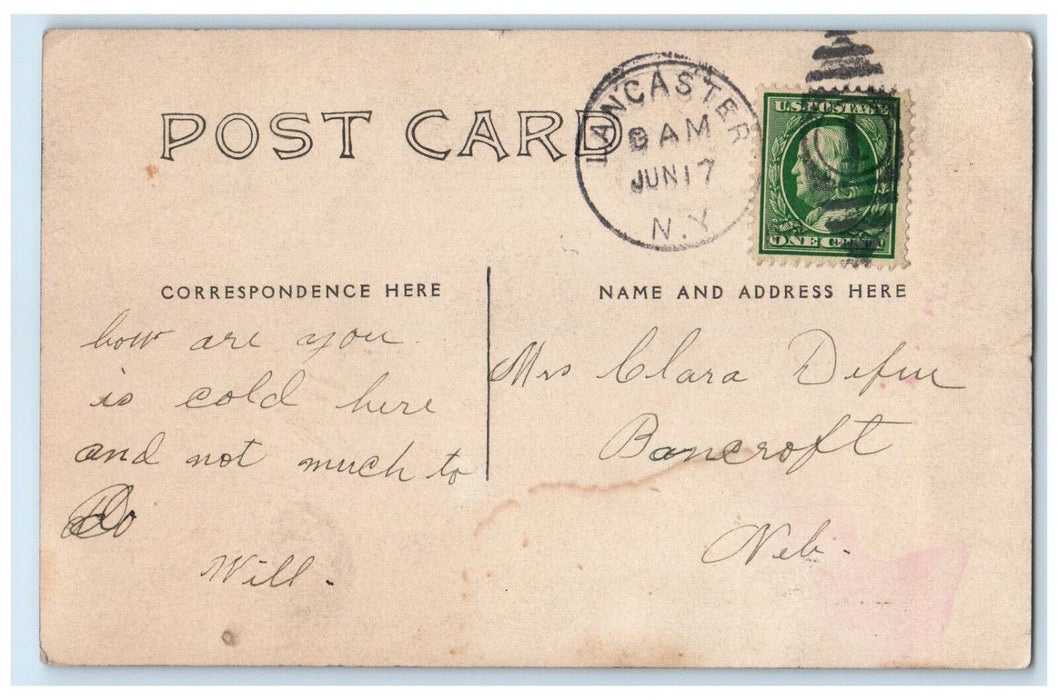 POST CARD
LANCASTER
8 AM
JUN 17
N.Y
U.S. POSTAGE
1
ONE CENT
CORRESPONDENCE HERE
NAME AND ADDRESS HERE
how are you
is cold here
and not much to
Do
Will.
Mrs Clara
Bancroft
Neb.